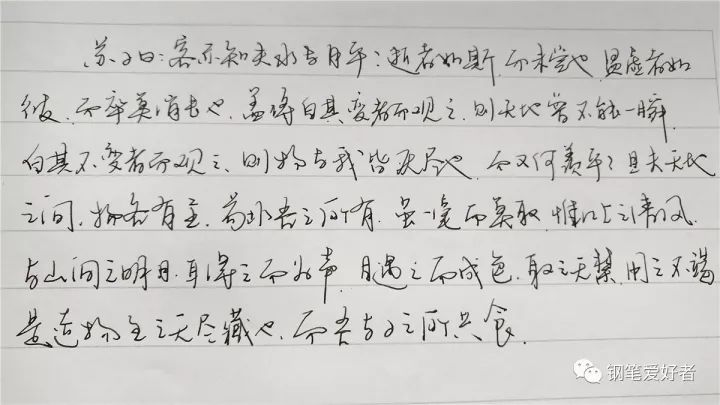 苏子曰:客亦知夫水与月乎?逝者如斯,而未尝也,盈虚者如
彼,而卒莫消长也,盖将自其变者而观之,则天地曾不能一瞬,
自其不变者而观之,则物与我皆无尽也,而又何羡乎?且夫天地
之间,物各有主,苟非吾之所有,虽一毫而莫取,惟江上之清风,
与山间之明月,耳得之而为声,目遇之而成色,取之无禁,用之不竭
是造物主之无尽藏也,而吾与子之所共食.
钢笔爱好者